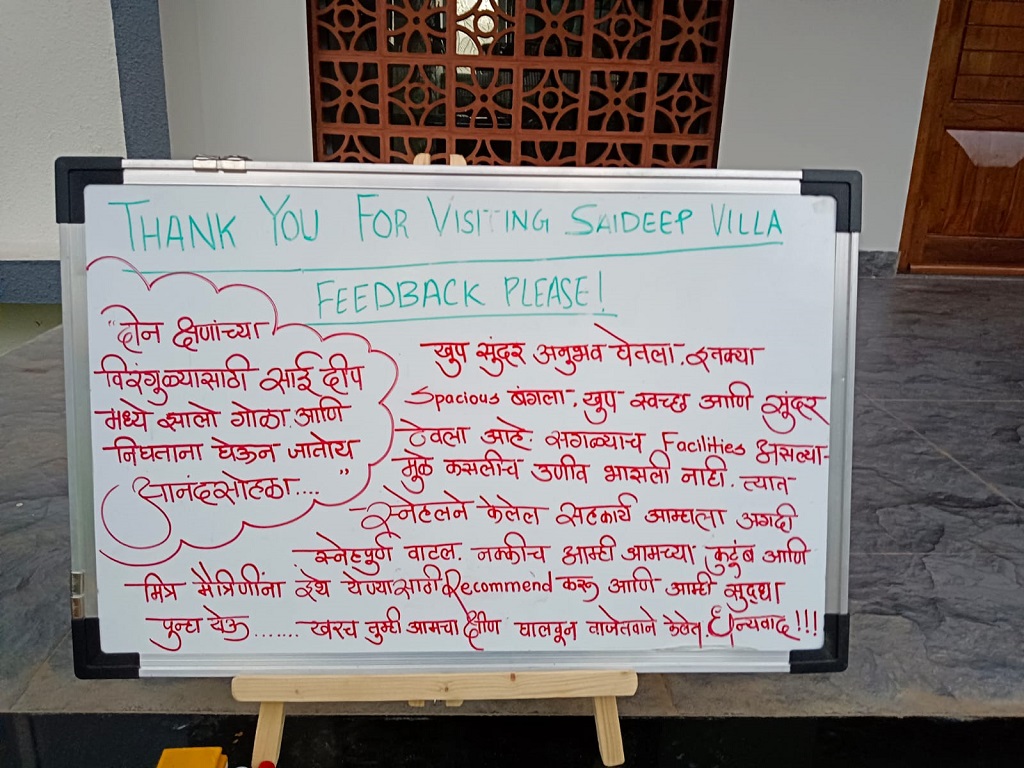 THANK YOU FOR VISITING SAIDEEP VILLA
FEEDBACK PLEASE!
"दोन क्षणांच्या
विरंगुळ्यासाठी साई दीप
मध्ये झालो गोळा आणि
निघताना घेऊन जातोय
आनंदसोहळा...."
खुप सुंदर अनुभव घेतला. इतक्या
Spacious बंगला. खुप स्वच्छ आणि सुंदर
ठेवला आहे. सगळ्याच Facilities असल्या-
मुळे कसलीच उणीव भासली नाही. त्यात
स्नेहलने केलेल सहकार्य आम्हाला अगदी
स्नेहपूर्ण वाटल. नक्कीच आम्ही आमच्या कुटुंब आणि
मित्र मैत्रिणींना इथे येण्यासाठी Recommend करू आणि आम्ही सुद्धा
पुन्हा येऊ ........ खरच तुम्ही आमचा क्षीण घालवून ताजेतवाने केलेत. धन्यवाद !!!